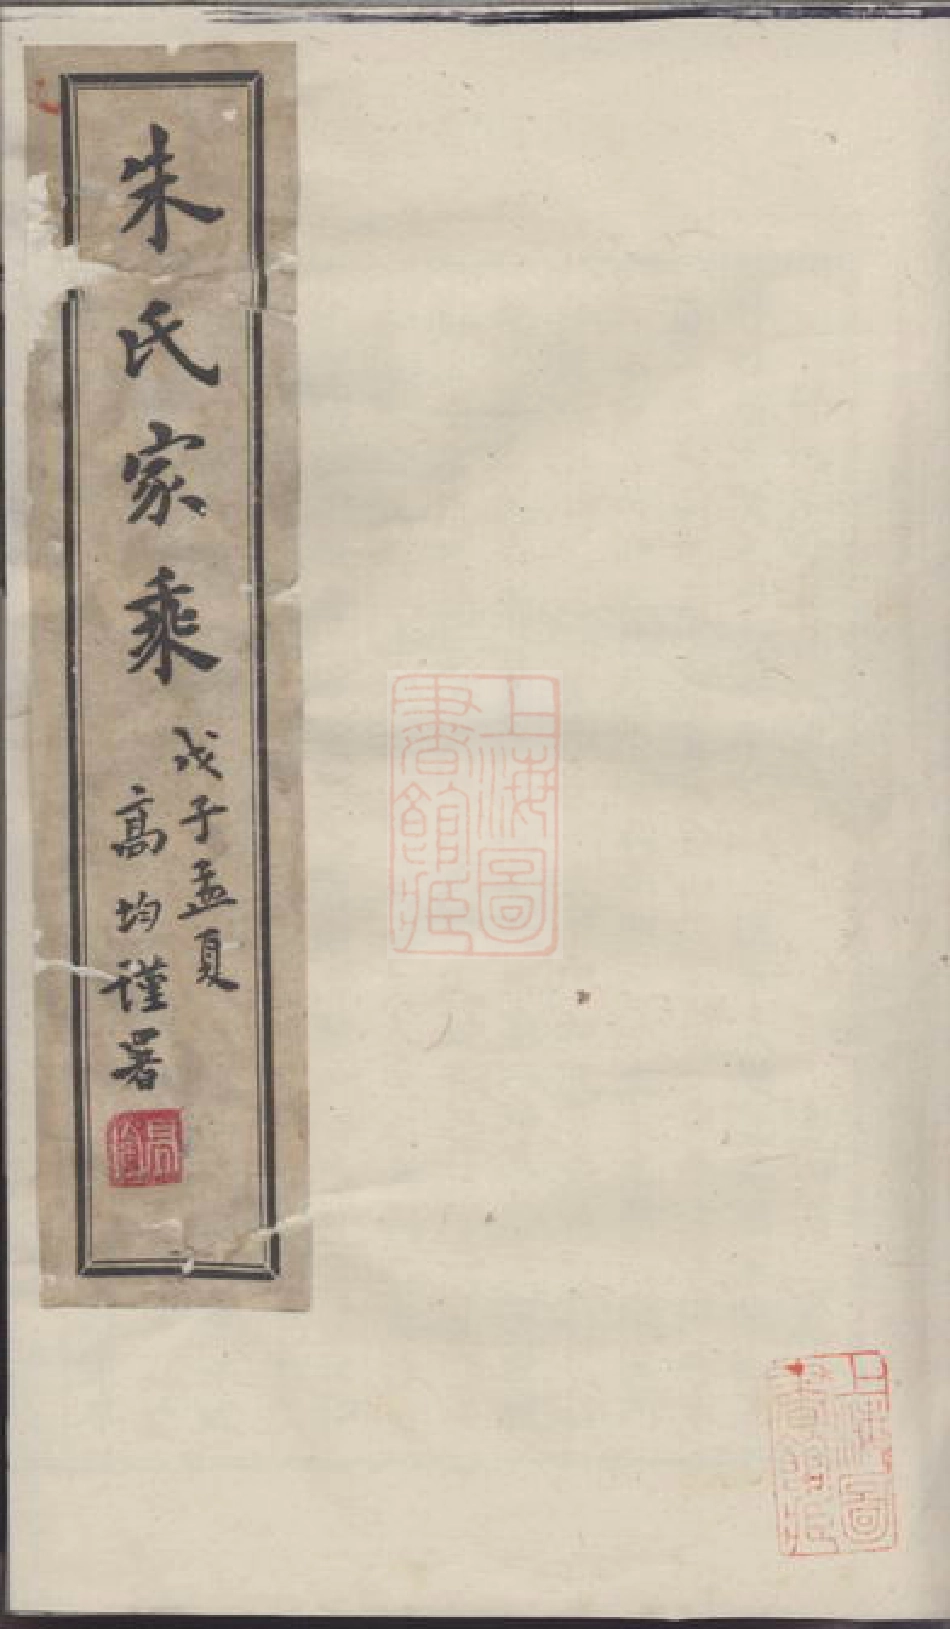 朱氏家乘
戊子孟夏
高均謹署
上海圖
書館藏
上海圖
書館藏